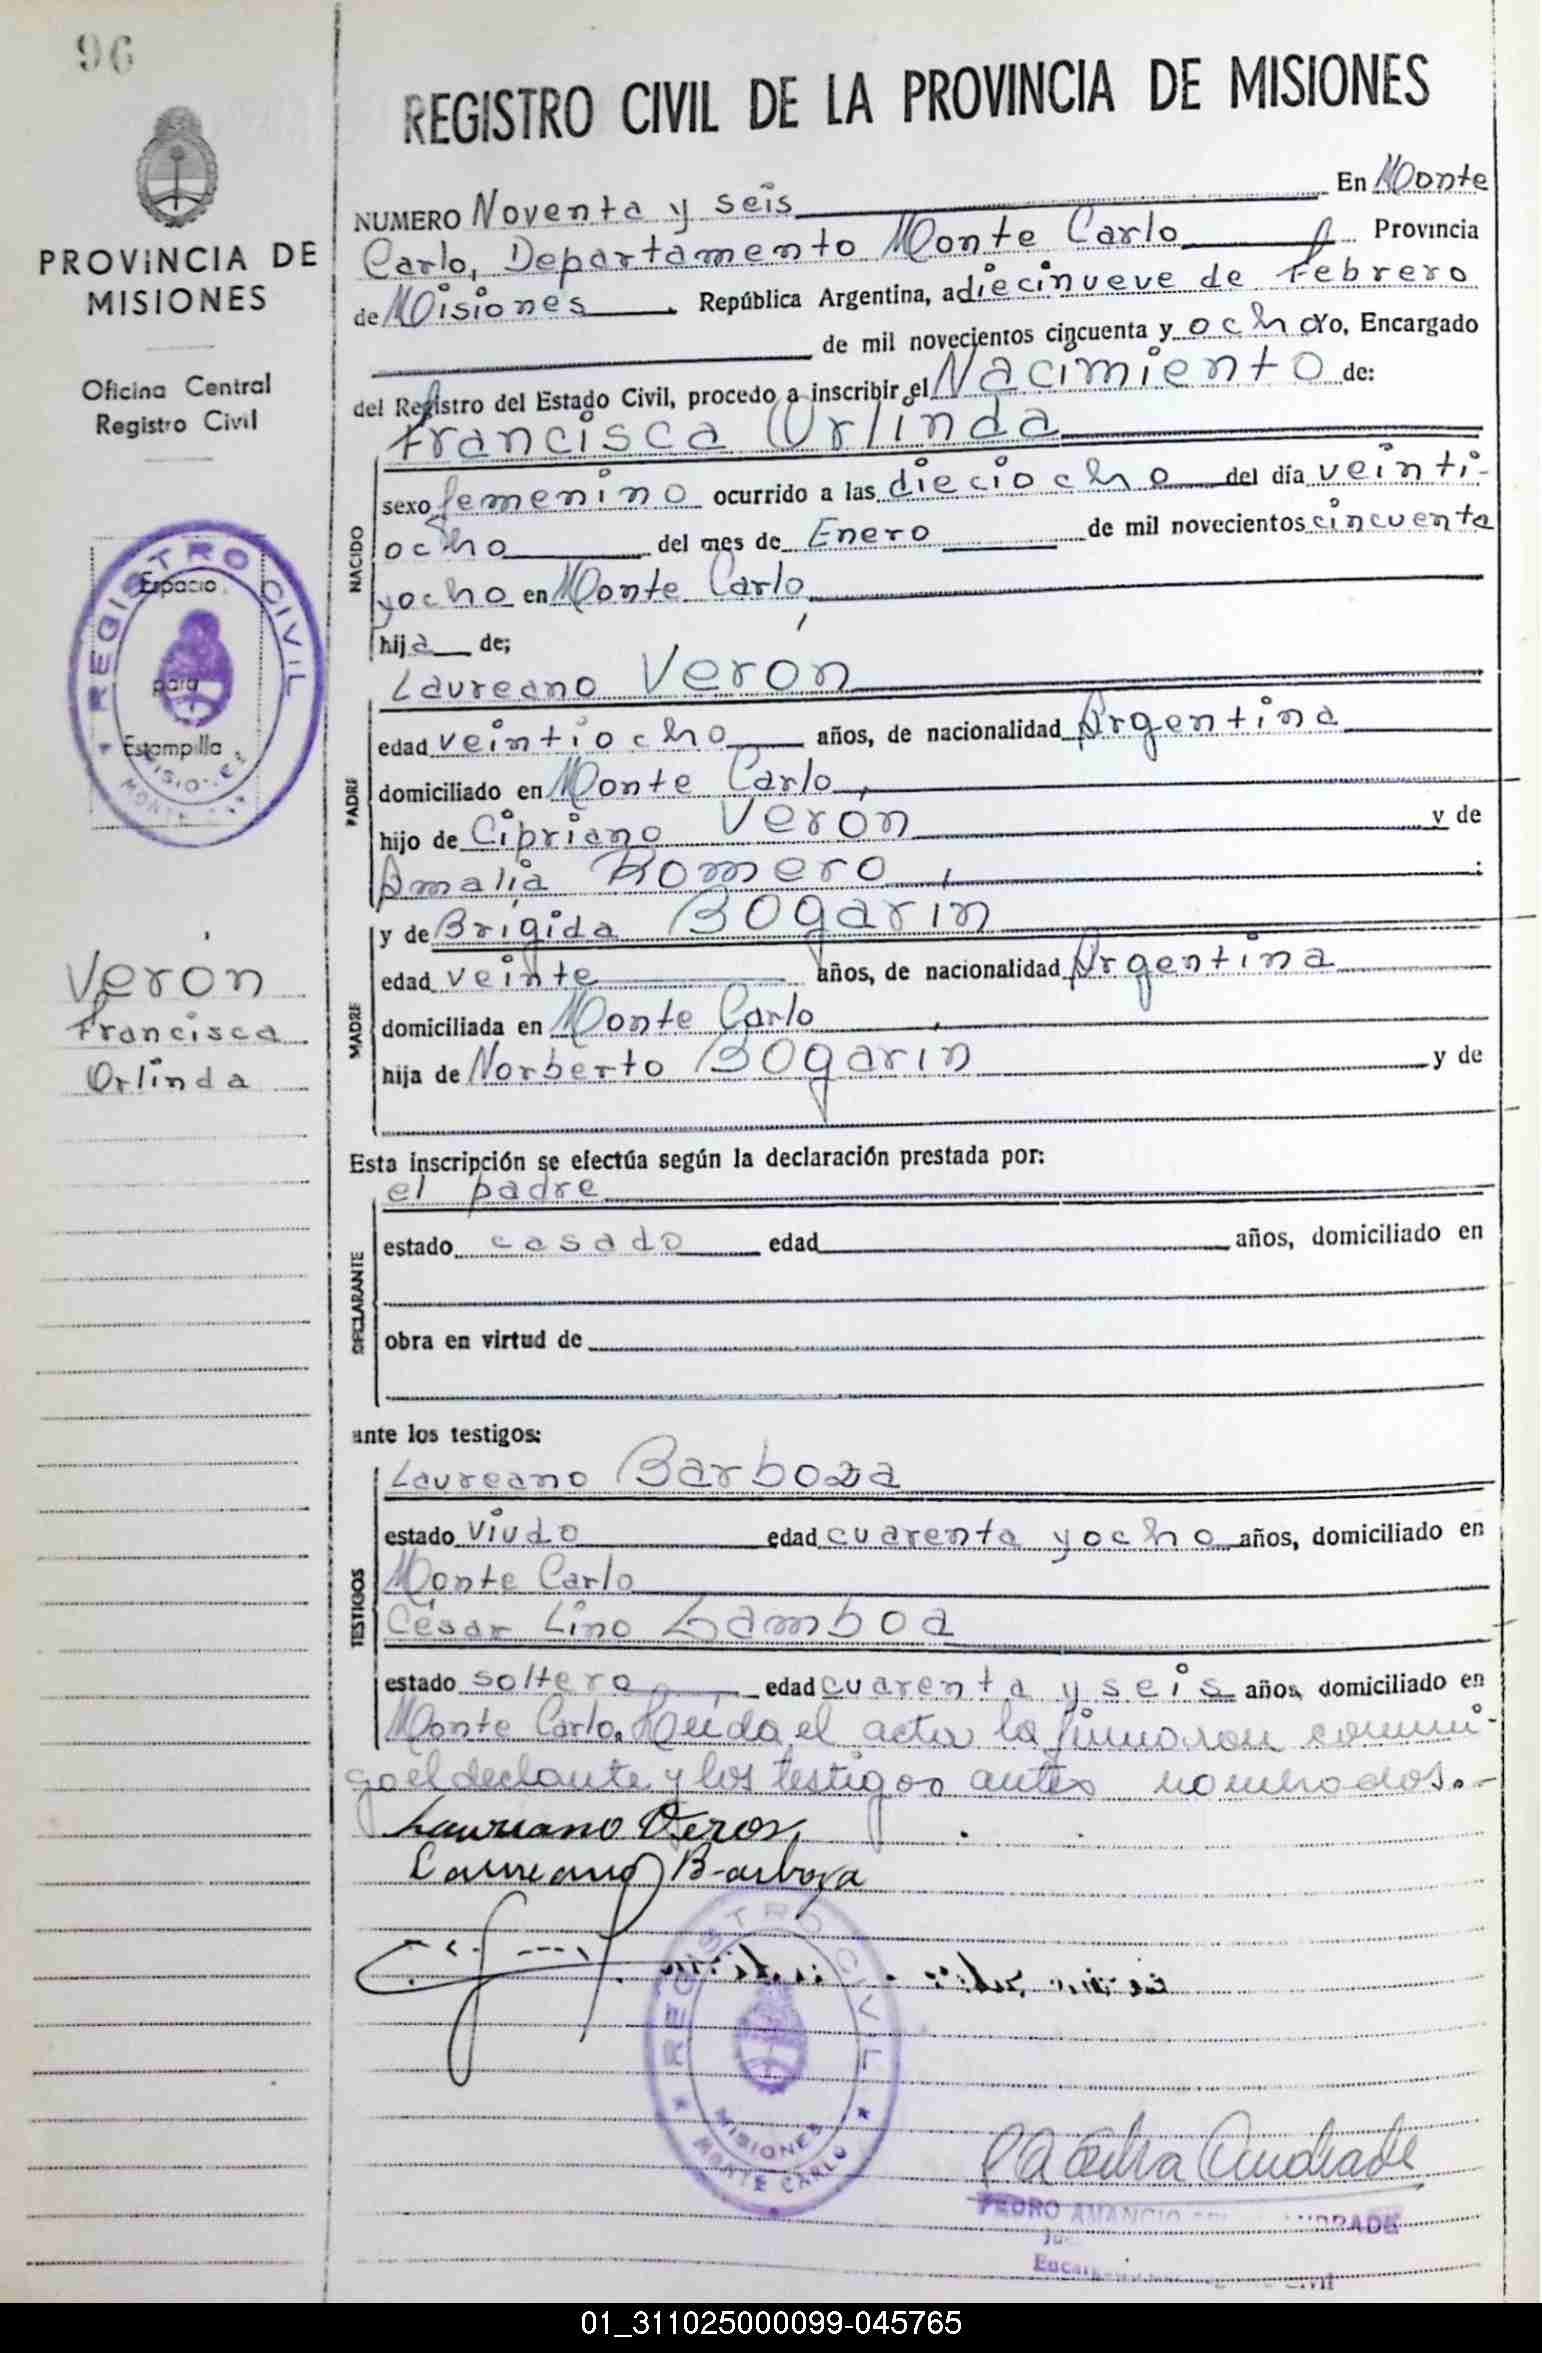 96
PROVINCIA DE
MISIONES
Oficina Central
Registro Civil
REGISTRO CIVIL
Espacio
para
Estampilla
MISIONES
MONTE CARLO
Verón
Francisca
Orlinda
REGISTRO CIVIL DE LA PROVINCIA DE MISIONES
NUMERO Noventa y seis En Monte
Carlo, Departamento Monte Carlo Provincia
de Misiones República Argentina, a diecinueve de Febrero
de mil novecientos cincuenta y ocho Yo, Encargado
del Registro del Estado Civil, procedo a inscribir el Nacimiento de:
Francisca Orlinda
NACIDO
sexo femenino ocurrido a las dieciocho del día veinti-
ocho del mes de Enero de mil novecientos cincuenta
y ocho en Monte Carlo,
hija de;
Laureano Verón
PADRE
edad veintiocho años, de nacionalidad Argentina
domiciliado en Monte Carlo,
hijo de Cipriano Verón y de
Amalia Romero, ;
MADRE
y de Brígida Bogarin
edad veinte años, de nacionalidad Argentina
domiciliada en Monte Carlo,
hija de Norberto Bogarin y de
Esta inscripción se efectúa según la declaración prestada por:
el padre
DECLARANTE
estado casado edad años, domiciliado en
obra en virtud de
ante los testigos:
TESTIGOS
Laureano Barboza
estado viudo edad cuarenta y ocho años, domiciliado en
Monte Carlo
César Lino Zamboa
estado soltero, edad cuarenta y seis años, domiciliado en
Monte Carlo. Leída el acta la firmaron conmi-
go el declante y los testigos antes nombrados.-
Laureano Veron
Laureano Barboza
REGISTRO CIVIL
MISIONES
MONTE CARLO
Andrade
PEDRO AMANCIO ANDRADE
01_311025000099-045765